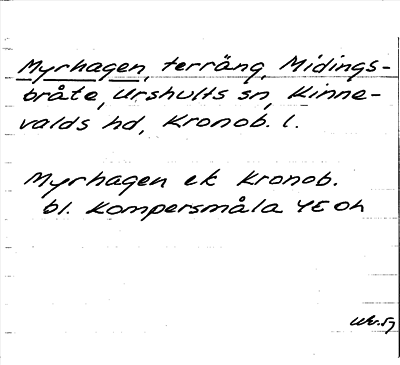 Myrhagen, terräng, Midings-
bråte, Urshults sn, Kinne-
valds hd, Kronob. l.
Myrhagen ek Kronob.
bl. Kompersmåla 4E Oh